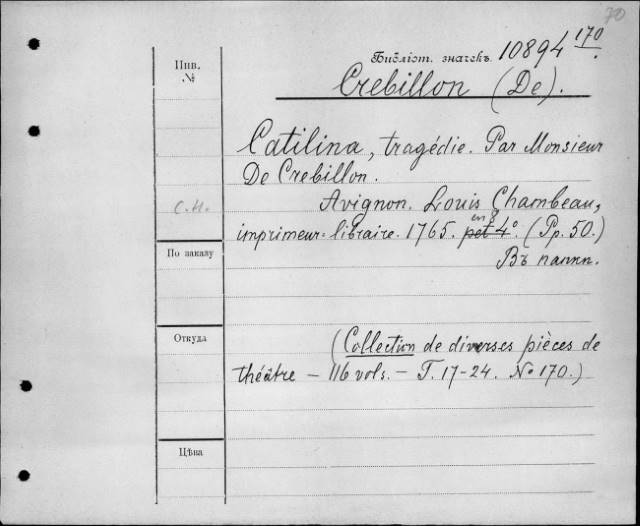 70
Инв. №
Библіот. значекъ. 10894 170.
Crebillon (De).
Catilina, tragédie. Par Monsieur
De Crebillon.
Avignon. Louis Chambeau,
imprimeur-libraire. 1765. pet 4° en 8 (Pp. 50.)
Въ папкп.
С.Н.
По заказу
Откуда
(Collection de diverses pièces de
théâtre — 116 vols. — T. 17-24. № 170.)
Цѣна